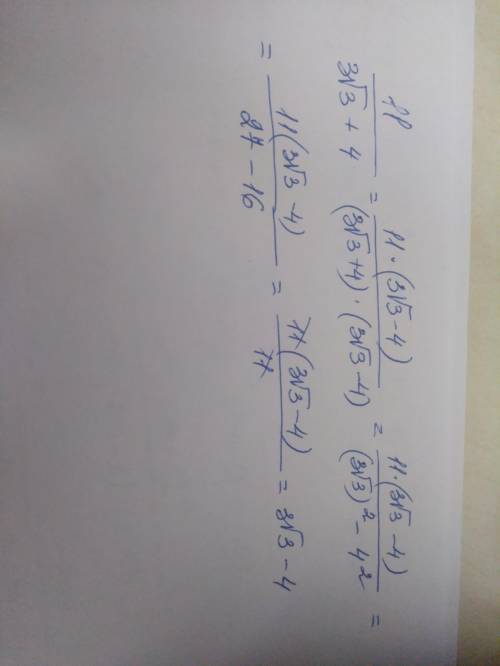 11/(3√3 + 4) = 11·(3√3-4)/((3√3+4)·(3√3-4)) = 11·(3√3-4)/((3√3)²-4²) =
= 11(3√3-4)/(27-16) = 11(3√3-4)/11 = 3√3-4